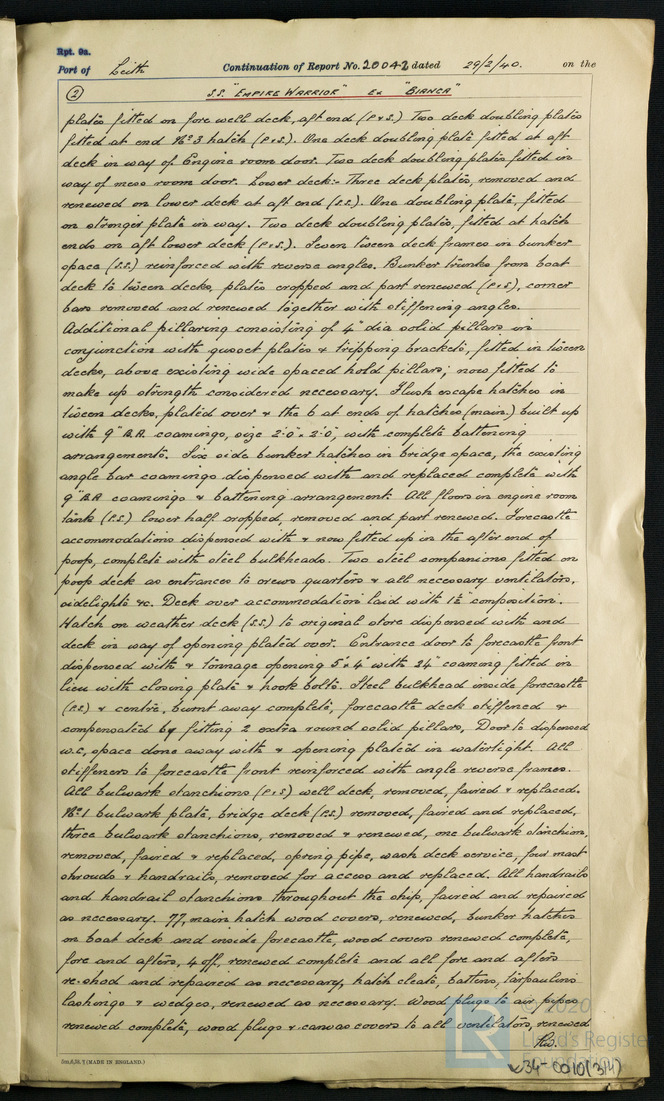 Rpt. 9a.
Port of Leith Continuation of Report No. 20042 dated 29/2/40. on the
(2) S.S. "EMPIRE WARRIOR" Ex "BIANCA"
plates fitted on fore well deck, aft end (P&S.) Two deck doubling plates
fitted at end No 3 hatch (P&S.). One deck doubling plate fitted at aft
deck in way of Engine room door. Two deck doubling plates fitted in
way of mess room door. Lower deck:- Three deck plates, removed and
renewed on lower deck at aft end (S.S.). One doubling plate, fitted
on stronger plate in way. Two deck doubling plates, fitted at hatch
ends on aft lower deck (P&S.). Seven tween deck frames in bunker
space (S.S.) reinforced with reverse angles. Bunker trunks from boat
deck to tween decks, plates cropped and part renewed (P&S), corner
bars removed and renewed together with stiffening angles.
Additional pillaring consisting of 4" dia solid pillars in
conjunction with gusset plates & tripping brackets, fitted in tween
decks, above existing wide spaced hold pillars; now fitted to
make up strength considered necessary. Flush escape hatches in
tween decks, plated over & the 6 at ends of hatches (main.) built up
with 9" B.A. coamings, size 2'.0" x 2'.0", with complete battening
arrangements. Six side bunker hatches in bridge space, the existing
angle bar coamings dispensed with and replaced complete with
9" B.A coamings & battening arrangement. All floors in engine room
tank (P.S.) lower half cropped, removed and part renewed. Forecastle
accommodations dispensed with & now fitted up in the after end of
poop, complete with steel bulkheads. Two steel companions fitted on
poop deck as entrances to crews quarters & all necessary ventilators,
sidelights &c. Deck over accommodation laid with 1½" composition.
Hatch on weather deck (S.S.) to original store dispensed with and
deck in way of opening plated over. Entrance door to forecastle front
dispensed with & tonnage opening 5' x 4' with 24" coaming fitted in
lieu with closing plate & hook bolts. Steel bulkhead inside forecastle
(P.S.) & centre, burnt away complete, forecastle deck stiffened &
compensated by fitting 2 extra round solid pillars, Door to dispensed
w.c, space done away with & opening plated in watertight. All
stiffeners to forecastle front reinforced with angle reverse frames.
All bulwark stanchions (P&S) well deck, removed, faired & replaced.
No 1 bulwark plate, bridge deck (P.S.) removed, faired and replaced,
three bulwark stanchions, removed & renewed, one bulwark stanchion,
removed, faired & replaced, spring pipe, wash deck service, four mast
shrouds & handrails, removed for access and replaced. All handrails
and handrail stanchions throughout the ship, faired and repaired
as necessary. 77, main hatch wood covers, renewed, bunker hatches
on boat deck and inside forecastle, wood covers renewed complete,
fore and afters, 4 off, renewed complete and all fore and afters
re-shod and repaired as necessary, hatch cleats, battens, tarpaulins
lashings & wedges, renewed as necessary. Wood plugs to air pipes
renewed complete, wood plugs & canvas covers to all ventilators, renewed
© 2020
LR Lloyd's Register
Foundation
(MADE IN ENGLAND.)
W34-0010(3/4)